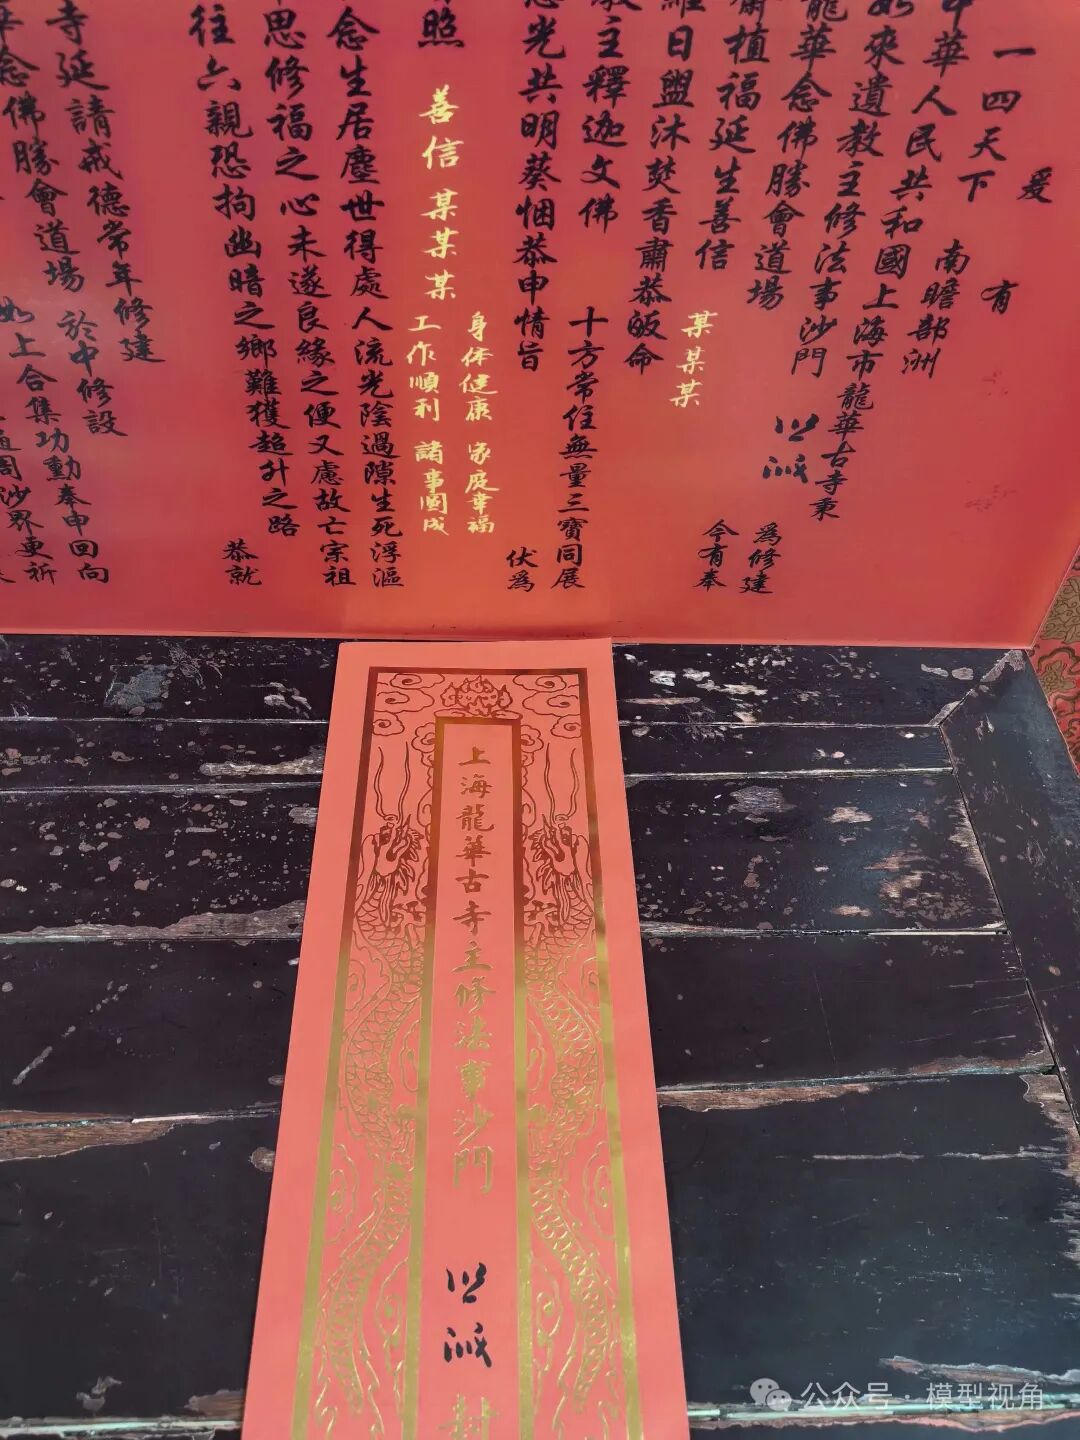 爰有
一四天下 南瞻部洲
中華人民共和國上海市龍華古寺秉
如來遺教主修法事沙門 爲修建
龍華念佛勝會道場 今有奉
植福延生善信 某某某
維日盥沐焚香肅恭皈命
教主釋迦文佛 十方常住無量三寶同展
光共明葵悃恭申情旨 伏爲
照 善信某某某 身体健康 家庭幸福
工作順利 諸事圓成
念生居塵世得處人流光陰過隙生死浮漚
思修福之心未遂良緣之便又慮故亡宗祖
往六親恐拘幽暗之鄉難獲超升之路 恭就
寺延請戒德常年修建
念佛勝會道場 於中修設
如上合集功勳奉申回向
周沙界更祈
上海龍華古寺主修法事沙門
封
公众号·模型视角